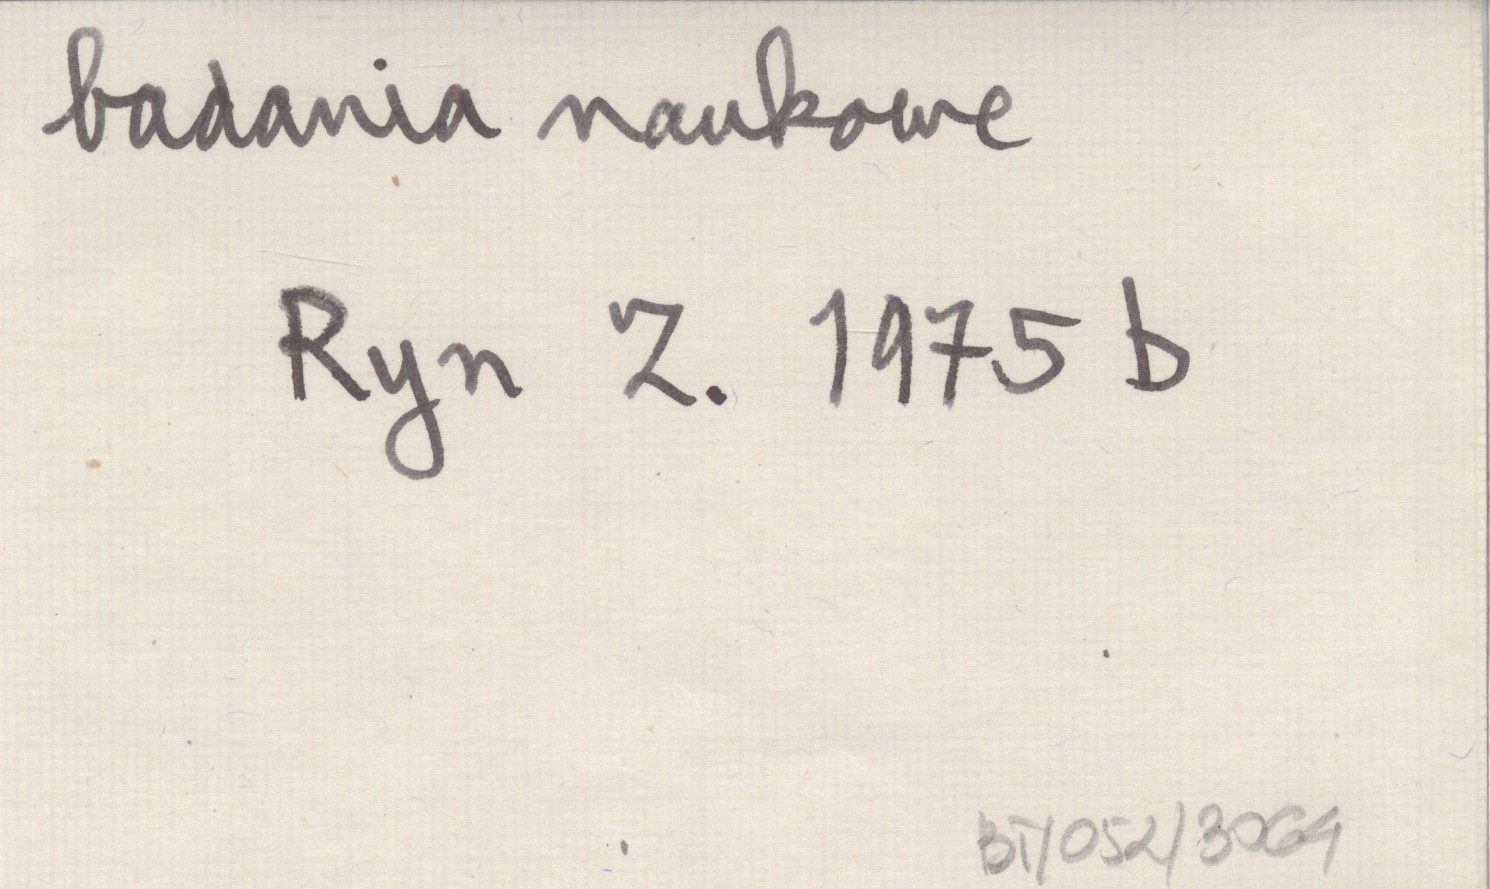 badania naukowe
Ryn Z. 1975 b
BT/052/3064